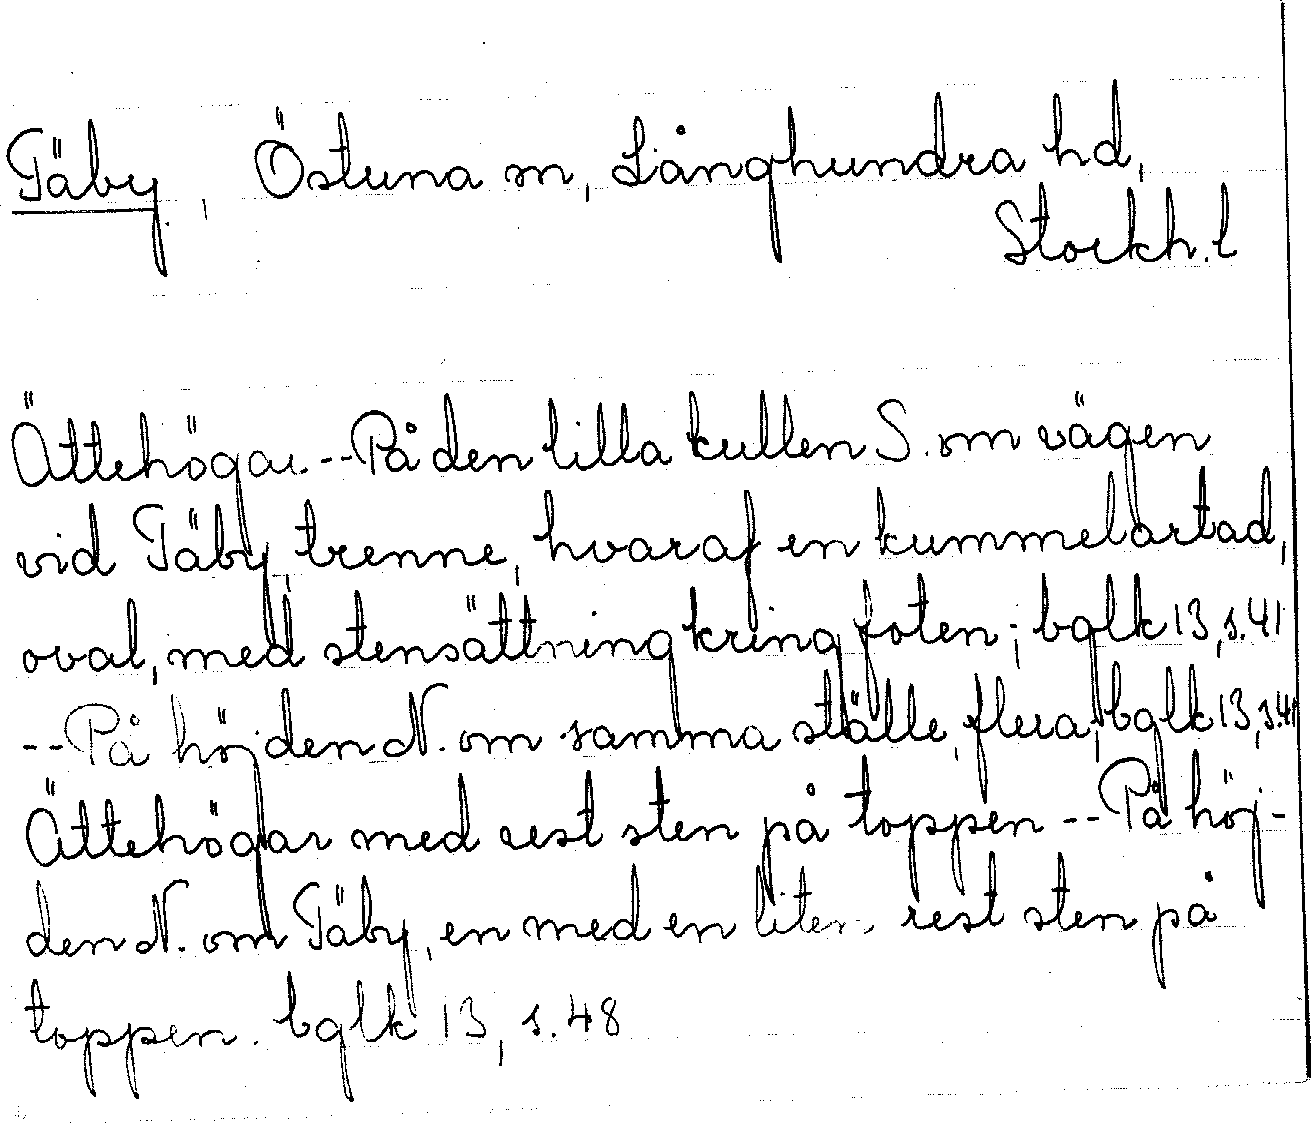 Täby, Östuna sn, Långhundra hd,
Stockh. l
Ättehögar. -- På den lilla kullen S. om vägen
vid Täby, trenne, hvaraf en kummelartad,
oval, med stensättning kring foten; bglk 13, s. 41
-- På höjden N. om samma ställe, flera; bglk 13, s. 41
Ättehögar med rest sten på toppen -- På höj-
den N. om Täby, en med en liten rest sten på
toppen. bglk 13, s. 48